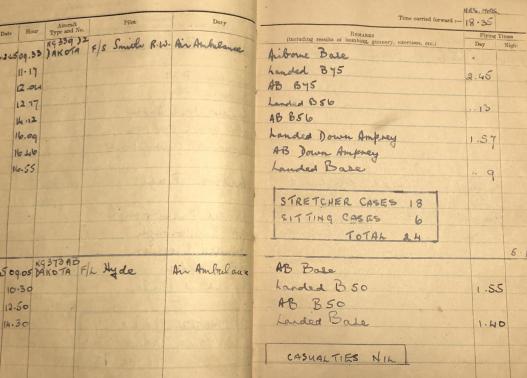 Date Hour Aircraft Type and No. Pilot Duty
09.33 KG389 J2 DAKOTA F/S Smith R.W. Air Ambulance
11.17
12.04
12.17
14.12
16.09
16.46
16.55
09.05 KG373 AD DAKOTA F/L Hyde Air Ambulance
10.30
12.50
14.30
HRS. MINS.
Time carried forward :— 18.35
REMARKS
(including results of bombing, gunnery, exercises, etc.)
Flying Times
Day Night
Airborne Base
Landed B75 2.45
AB B75
Landed B56 .13
AB B56
Landed Down Ampney 1.57
AB Down Ampney
Landed Base 9
STRETCHER CASES 18
SITTING CASES 6
TOTAL 24
AB Base
Landed B50 1.55
AB B50
Landed Base 1.40
CASUALTIES NIL